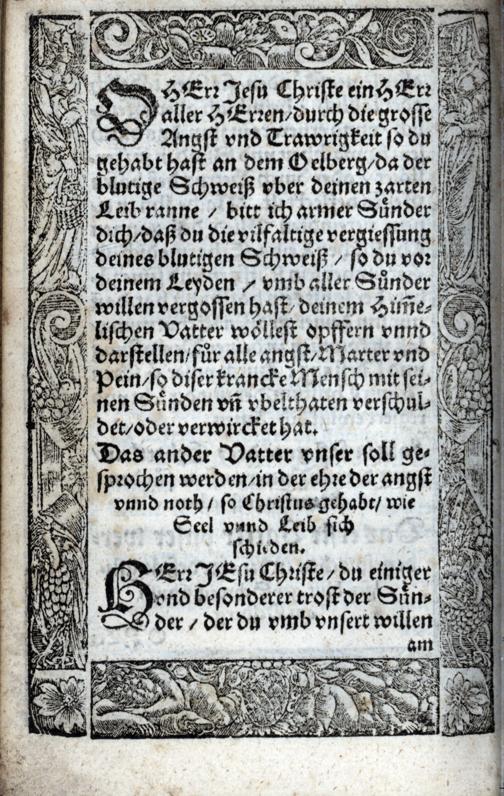 O HErr Jesu Christe ein HErr
aller HErren/durch die grosse
Angst vnd Trawrigkeit so du
gehabt hast an dem Oelberg/da der
blutige Schweiß vber deinen zarten
Leib ranne / bitt ich armer Sůnder
dich/daß du die vilfaltige vergiessung
deines blutigen Schweiß / so du vor
deinem Leyden / vmb aller Sůnder
willen vergossen hast/ deinem Him̃e-
lischen Vatter wöllest opffern vnnd
darstellen/fůr alle angst/Marter vnd
Pein/so diser krancke Mensch mit sei-
nen Sůnden vñ vbelthaten verschul-
det/oder verwircket hat.
Das ander Vatter vnser soll ge-
sprochen werden/in der ehre der angst
vnnd noth / so Christus gehabt/ wie
Seel vnnd Leib sich
schieden.
HErr JEsu Christe/du einiger
vnd besonderer trost der Sůn-
der / der du vmb vnsert willen
am